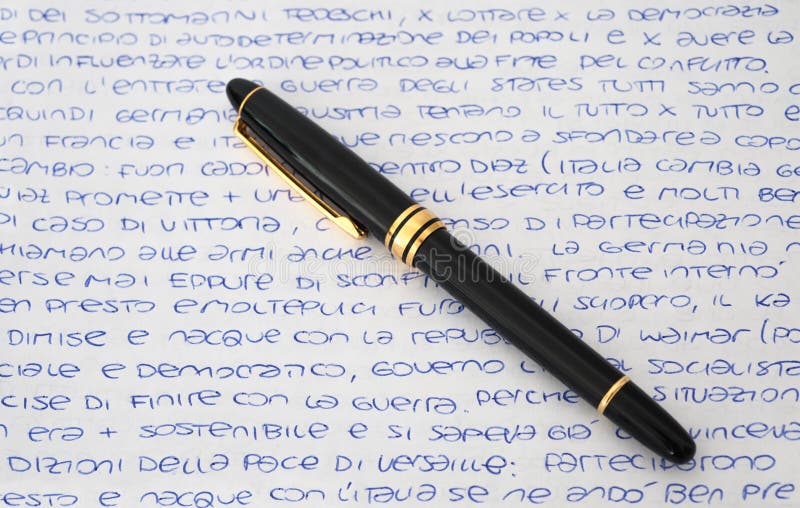 DI DEI SOTTOMANNI TEDESCHI, X LOTTARE X LA DEMOCRAZIA
E PRINCIPIO DI AUTODETERMINAZIONE DEI POPOLI E X AVERE LA
RDI INFLUENZARE L'ORDINE POLITICO ALLA FINE DEL CONFLITTO.
CON L'ENTRATA GUERRA DEGLI STATES TUTTI SANNO C
QUINDI GERMANIA AUSTRIA TENTANO IL TUTTO X TUTTO E
N FRANCIA E ITA QUE RIESCONO A SFONDARE A CAPO
CAMBIO: FUORI CADO DENTRO DIAZ (ITALIA CAMBIA GE
IAZ PROMETTE + UM ELL'ESERCITO E MOLTI BEN
DI CASO DI VITTORIA, C ENSO DI PARTECIPAZIONE
HIAMANO ALLE ARMI ANCHE NNI. LA GERMANIA N
ERSE MAI EPPURE DI SCONFI IL FRONTE INTERNO
EN PRESTO E MOLTEPLICI FURO GLI SCIOPERO, IL KA
DIMISE E NACQUE CON LA REPUBB A DI WEIMAR (PO
CIALE E DEMOCRATICO, GOVERNO L AL SOCIALISTA
CISE DI FINIRE CON LA GUERRA. PERCHÉ SITUAZION
N ERA + SOSTENIBILE E SI SAPEVA GIÀ C VINCEVA
DIZIONI DELLA PACE DI VERSAILLE: PARTECIPARONO
ESTO E NACQUE CON L'ITALIA SE NE ANDÒ BEN PRE